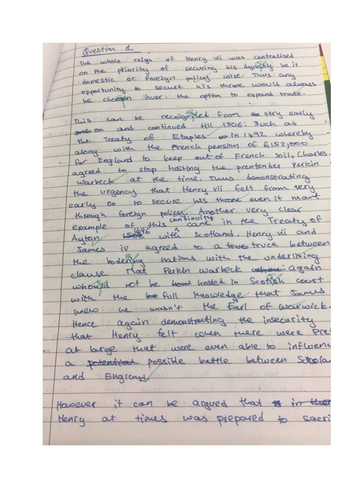 Question 1
The whole reign of Henry vii was centralised
on the priority of securing his dynasty be it
domestic or foreign policy wise. Thus any
opportunity to secure his throne would always
be chosen over the option to expand trade.
This can be recognised from very early
on and continued till 1506. Such as
the Treaty of Etaples in 1492 whereby
along with the French pension of £152,000
for England to keep out of French soil, Charles
agreed to stop hosting the pretender Perkin
Warbeck at the time. Thus demonstrating
the urgency that Henry vii felt from very
early on to secure his throne even it mant
through foreign policy. Another very clear
example of this continuing came in the Treaty of
Ayton with Scotland. Henry vii and
James iv agreed to a truce between
the bodering nations with the underlining
clause that Perkin Warbeck again
would not be hosted in Scotish court
with the full knowledge that James
knew he wasn't the Earl of Warwick.
Hence again demonstrating the insecurity
that Henry felt when there were Pre
at large that were even able to influen
a possible battle between Scotla
and England.
However it can be argued that
Henry at times was prepared to sacri